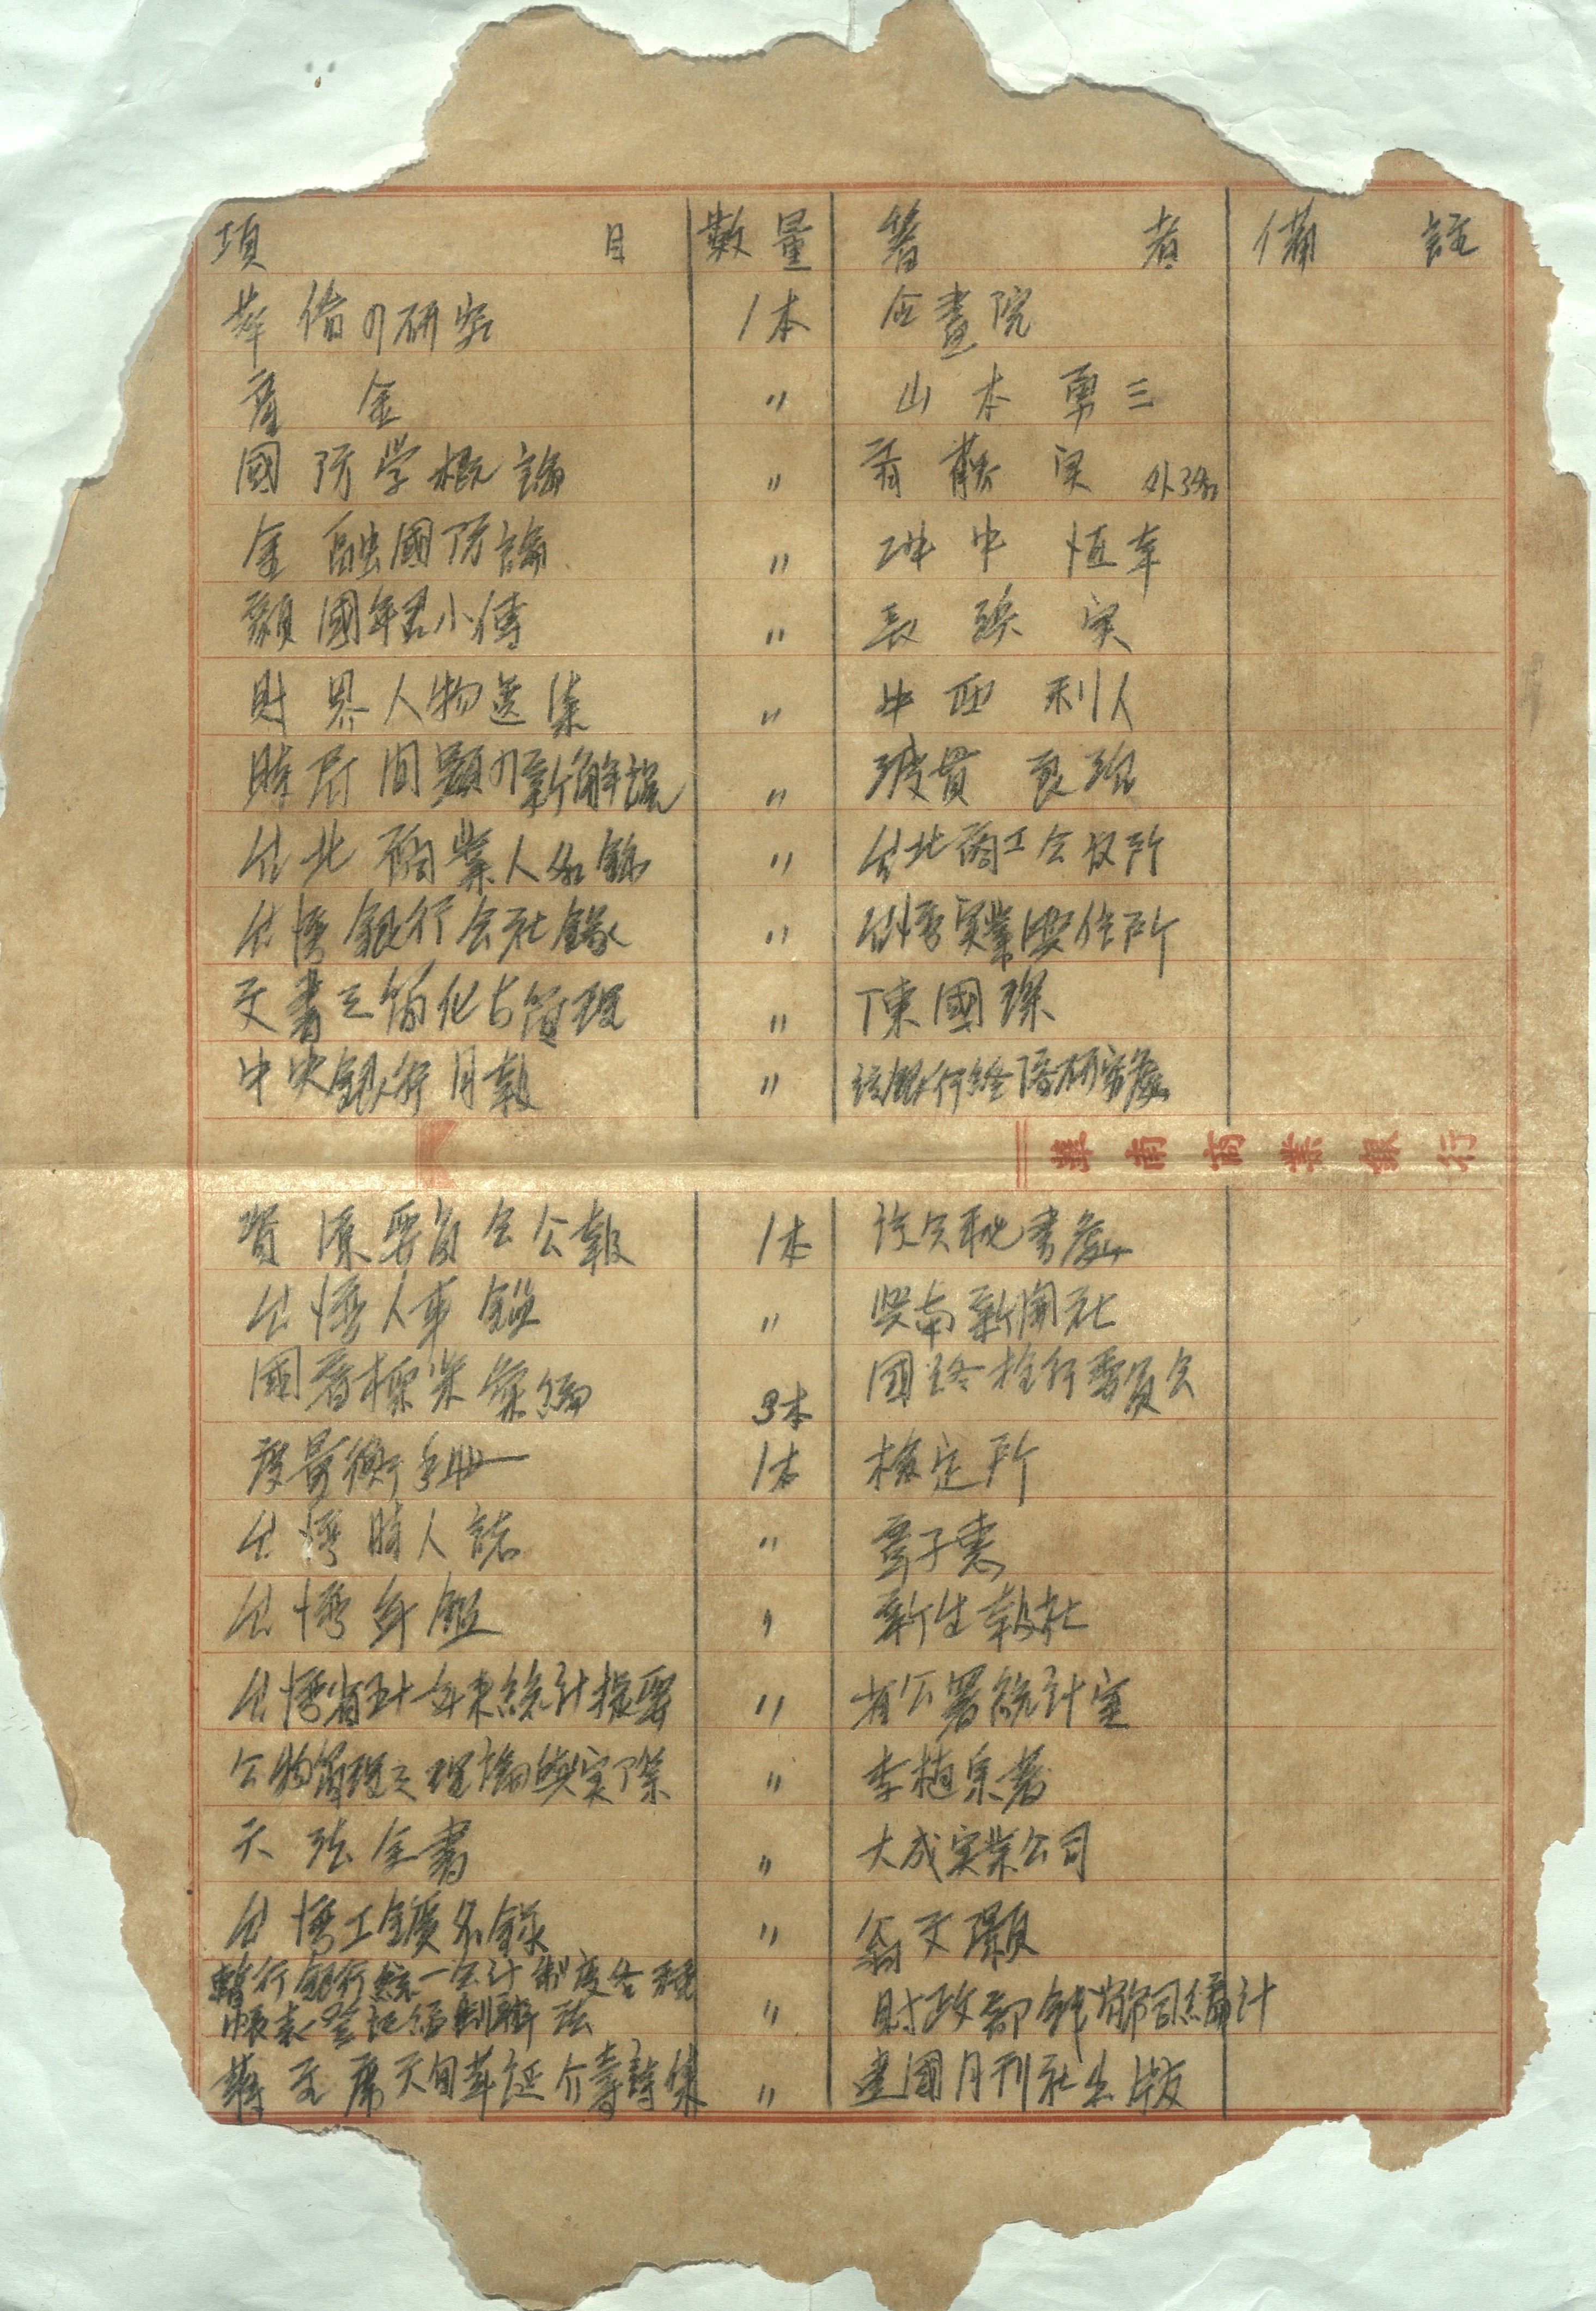 項目 數量 著者 備註
華僑の研究 1本 企畫院
産金 〃 山本勇三
國防学概論 〃 斉藤実 外3名
金融國防論 〃 沖中恒幸
顏國年君小傳 〃 長濱実
財界人物選集 〃 中西利八
時局問題の新解説 〃 波貫良治
台北商業人名錄 〃 台北商工会議所
台湾銀行会社錄 〃 台湾実業興信所
文書之簡化与管理 〃 陳國琛
中央銀行月報 〃 該銀行經濟研究處
華南商業銀行
資源委員会公報 1本 該会秘書處
台湾人事鑑 〃 興南新聞社
國音標準彙編 3本 國語推行委員会
度量衡手册 1本 檢定所
台湾時人誌 〃 章子惠
台湾年鑑 〃 新生報社
台湾省五十一年來統計提要 〃 省公署統計室
公物管理之理論與実際 〃 李植泉著
六法全書 〃 大成実業公司
台湾工鑛名錄 〃 翁文灝
暫行銀行統一会計制度各種
帳表登記編製辦法 〃 財政部錢幣司編計
蔣主席六旬華誕介壽詩集 〃 建國月刊社出版